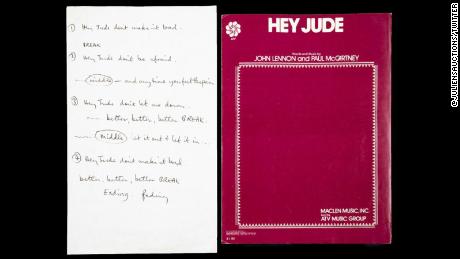 ① Hey Jude don't make it bad.
BREAK
② Hey Jude don't be afraid.
middle — and any time you feel the pain
③ Hey Jude don't let me down
better, better, better BREAK.
middle let it out & let it in...
④ Hey Jude don't make it bad
better, better, better BREAK
Ending fading
HEY JUDE
Words and Music by
JOHN LENNON and PAUL McCARTNEY
MACLEN MUSIC, INC.
ATV MUSIC GROUP
@JULIENSAUCTIONS/TWITTER